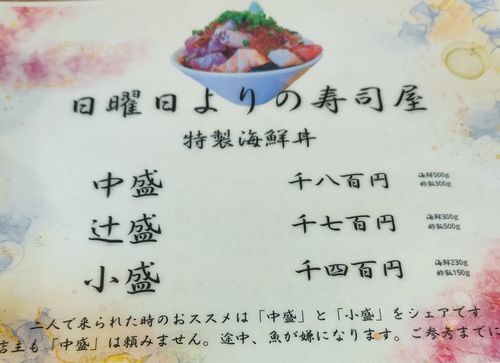 日曜日よりの寿司屋
特製海鮮丼
中盛 千八百円 海鮮500g
酢飯300g
辻盛 千七百円 海鮮300g
酢飯500g
小盛 千四百円 海鮮230g
酢飯150g
二人で来られた時のおススメは「中盛」と「小盛」をシェアです
店主も「中盛」は頼みません。途中、魚が嫌になります。ご参考までに